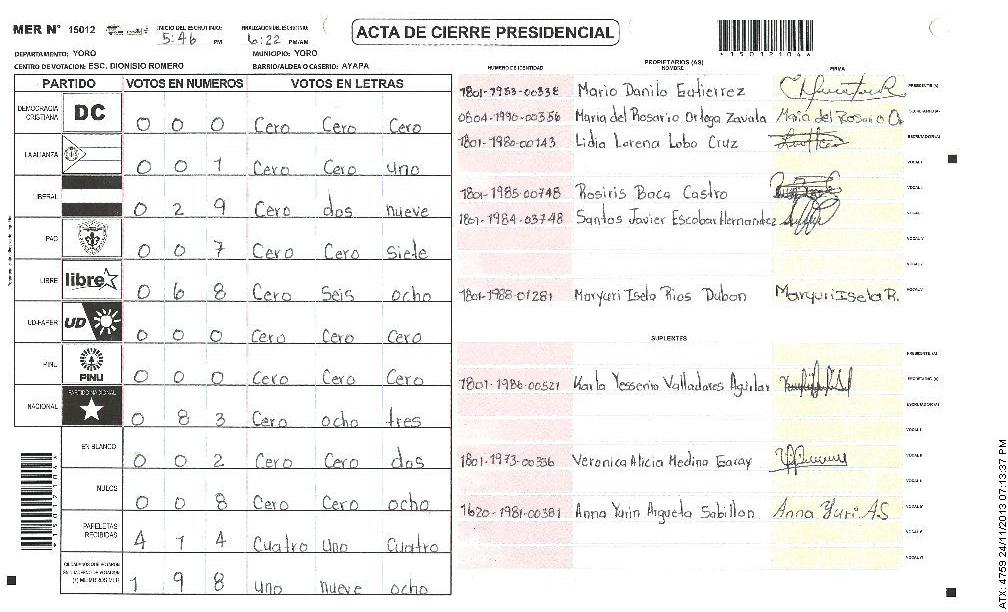 MER Nº 15012 INICIO DEL ESCRUTINIO: 5:46 PM FINALIZACION DEL ESCRUTINIO: 6:22 PM/AM
ACTA DE CIERRE PRESIDENCIAL
DEPARTAMENTO: YORO MUNICIPIO: YORO
CENTRO DE VOTACION: ESC. DIONISIO ROMERO BARRIO/ALDEA O CASERIO: AYAPA
PARTIDO VOTOS EN NUMEROS VOTOS EN LETRAS
DEMOCRACIA CRISTIANA DC 0 0 0 Cero Cero Cero
LA ALIANZA 0 0 1 Cero Cero uno
LIBERAL 0 2 9 Cero dos nueve
PAC 0 0 7 Cero Cero siete
LIBRE libre 0 6 8 Cero Seis ocho
UD-FAPER UD 0 0 0 Cero Cero Cero
PINU PINU 0 0 0 Cero Cero Cero
NACIONAL PARTIDO NACIONAL 0 8 3 Cero ocho tres
EN BLANCO 0 0 2 Cero Cero dos
NULOS 0 0 8 Cero Cero ocho
PAPELETAS RECIBIDAS 4 1 4 Cuatro uno Cuatro
CIUDADANOS QUE VOTARON EN CUADERNO DE VOTACION (+) MIEMBROS MER 1 9 8 uno nueve ocho
PROPIETARIOS (AS)
NUMERO DE IDENTIDAD NOMBRE FIRMA
1801-1953-00338 Mario Danilo Gutierrez PRESIDENTE (A)
0504-1990-00356 Maria del Rosario Ortega Zavala Maria del Rosario O. SECRETARIO (A)
1801-1980-00143 Lidia Lorena Lobo Cruz ESCRUTADOR (A)
VOCAL I
1801-1985-00748 Rosiris Baca Castro
1801-1984-03748 Santos Javier Escobar Hernandez
1801-1988-01281 Maryuri Isela Rios Dubon Maryuri Isela R.
SUPLENTES
PRESIDENTE (A)
1801-1986-00521 Karla Yessenia Valladares Aguilar SECRETARIO (A)
ESCRUTADOR (A)
VOCAL I
1801-1973-00336 Veronica Alicia Medina Garay
1620-1981-00381 Anna Yurin Argueta Sabillon Anna Yuri A.S
ATX: 4759 24/11/2013 07:13:37 PM